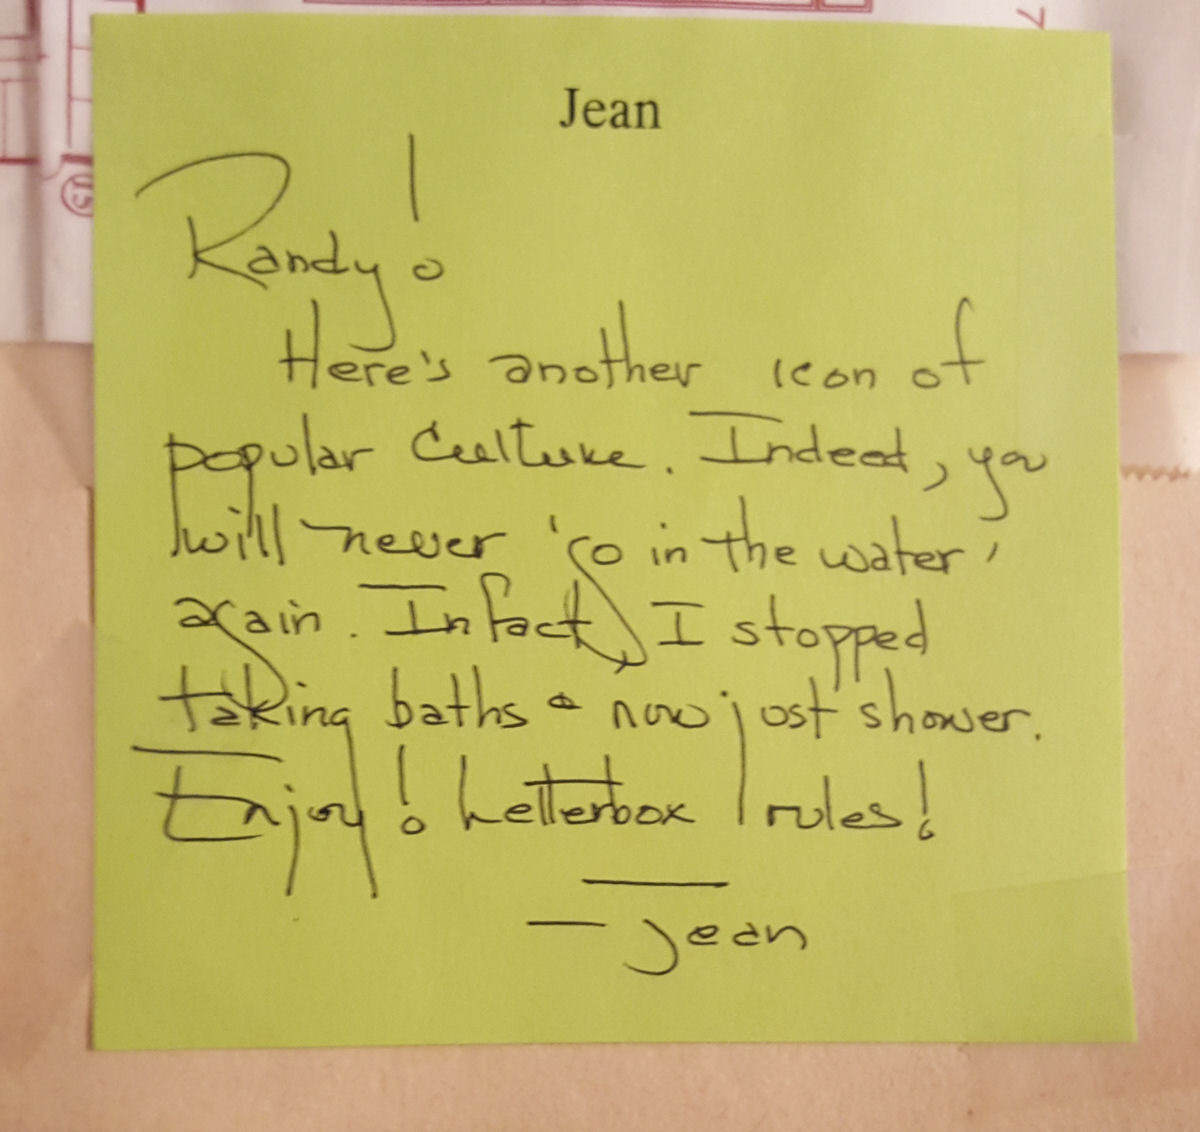 Jean
Randy!
Here's another icon of
popular culture. Indeed, you
will never 'go in the water'
again. In fact, I stopped
taking baths & now just shower.
Enjoy! Letterbox rules!
— Jean
7
15